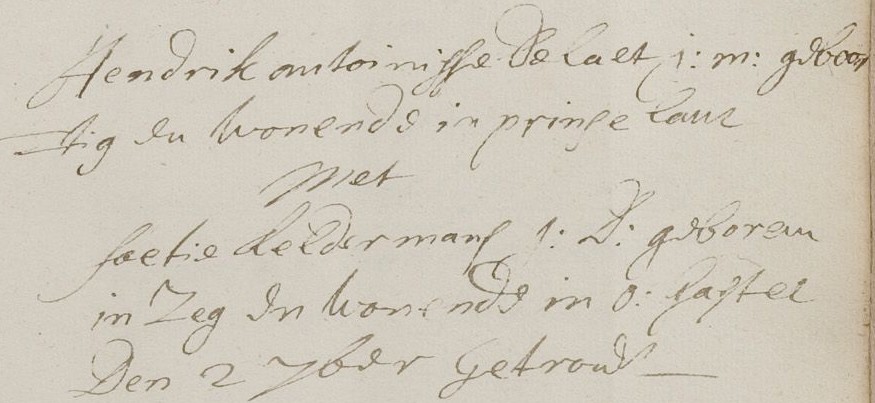 Hendrik antoinisse De laet j: m: geboor
tig en wonende in prinse lant
Met
foetie keldermans j: D: geboren
in Zeg en wonende in o: Gastel
Den 2 7ber Getrout